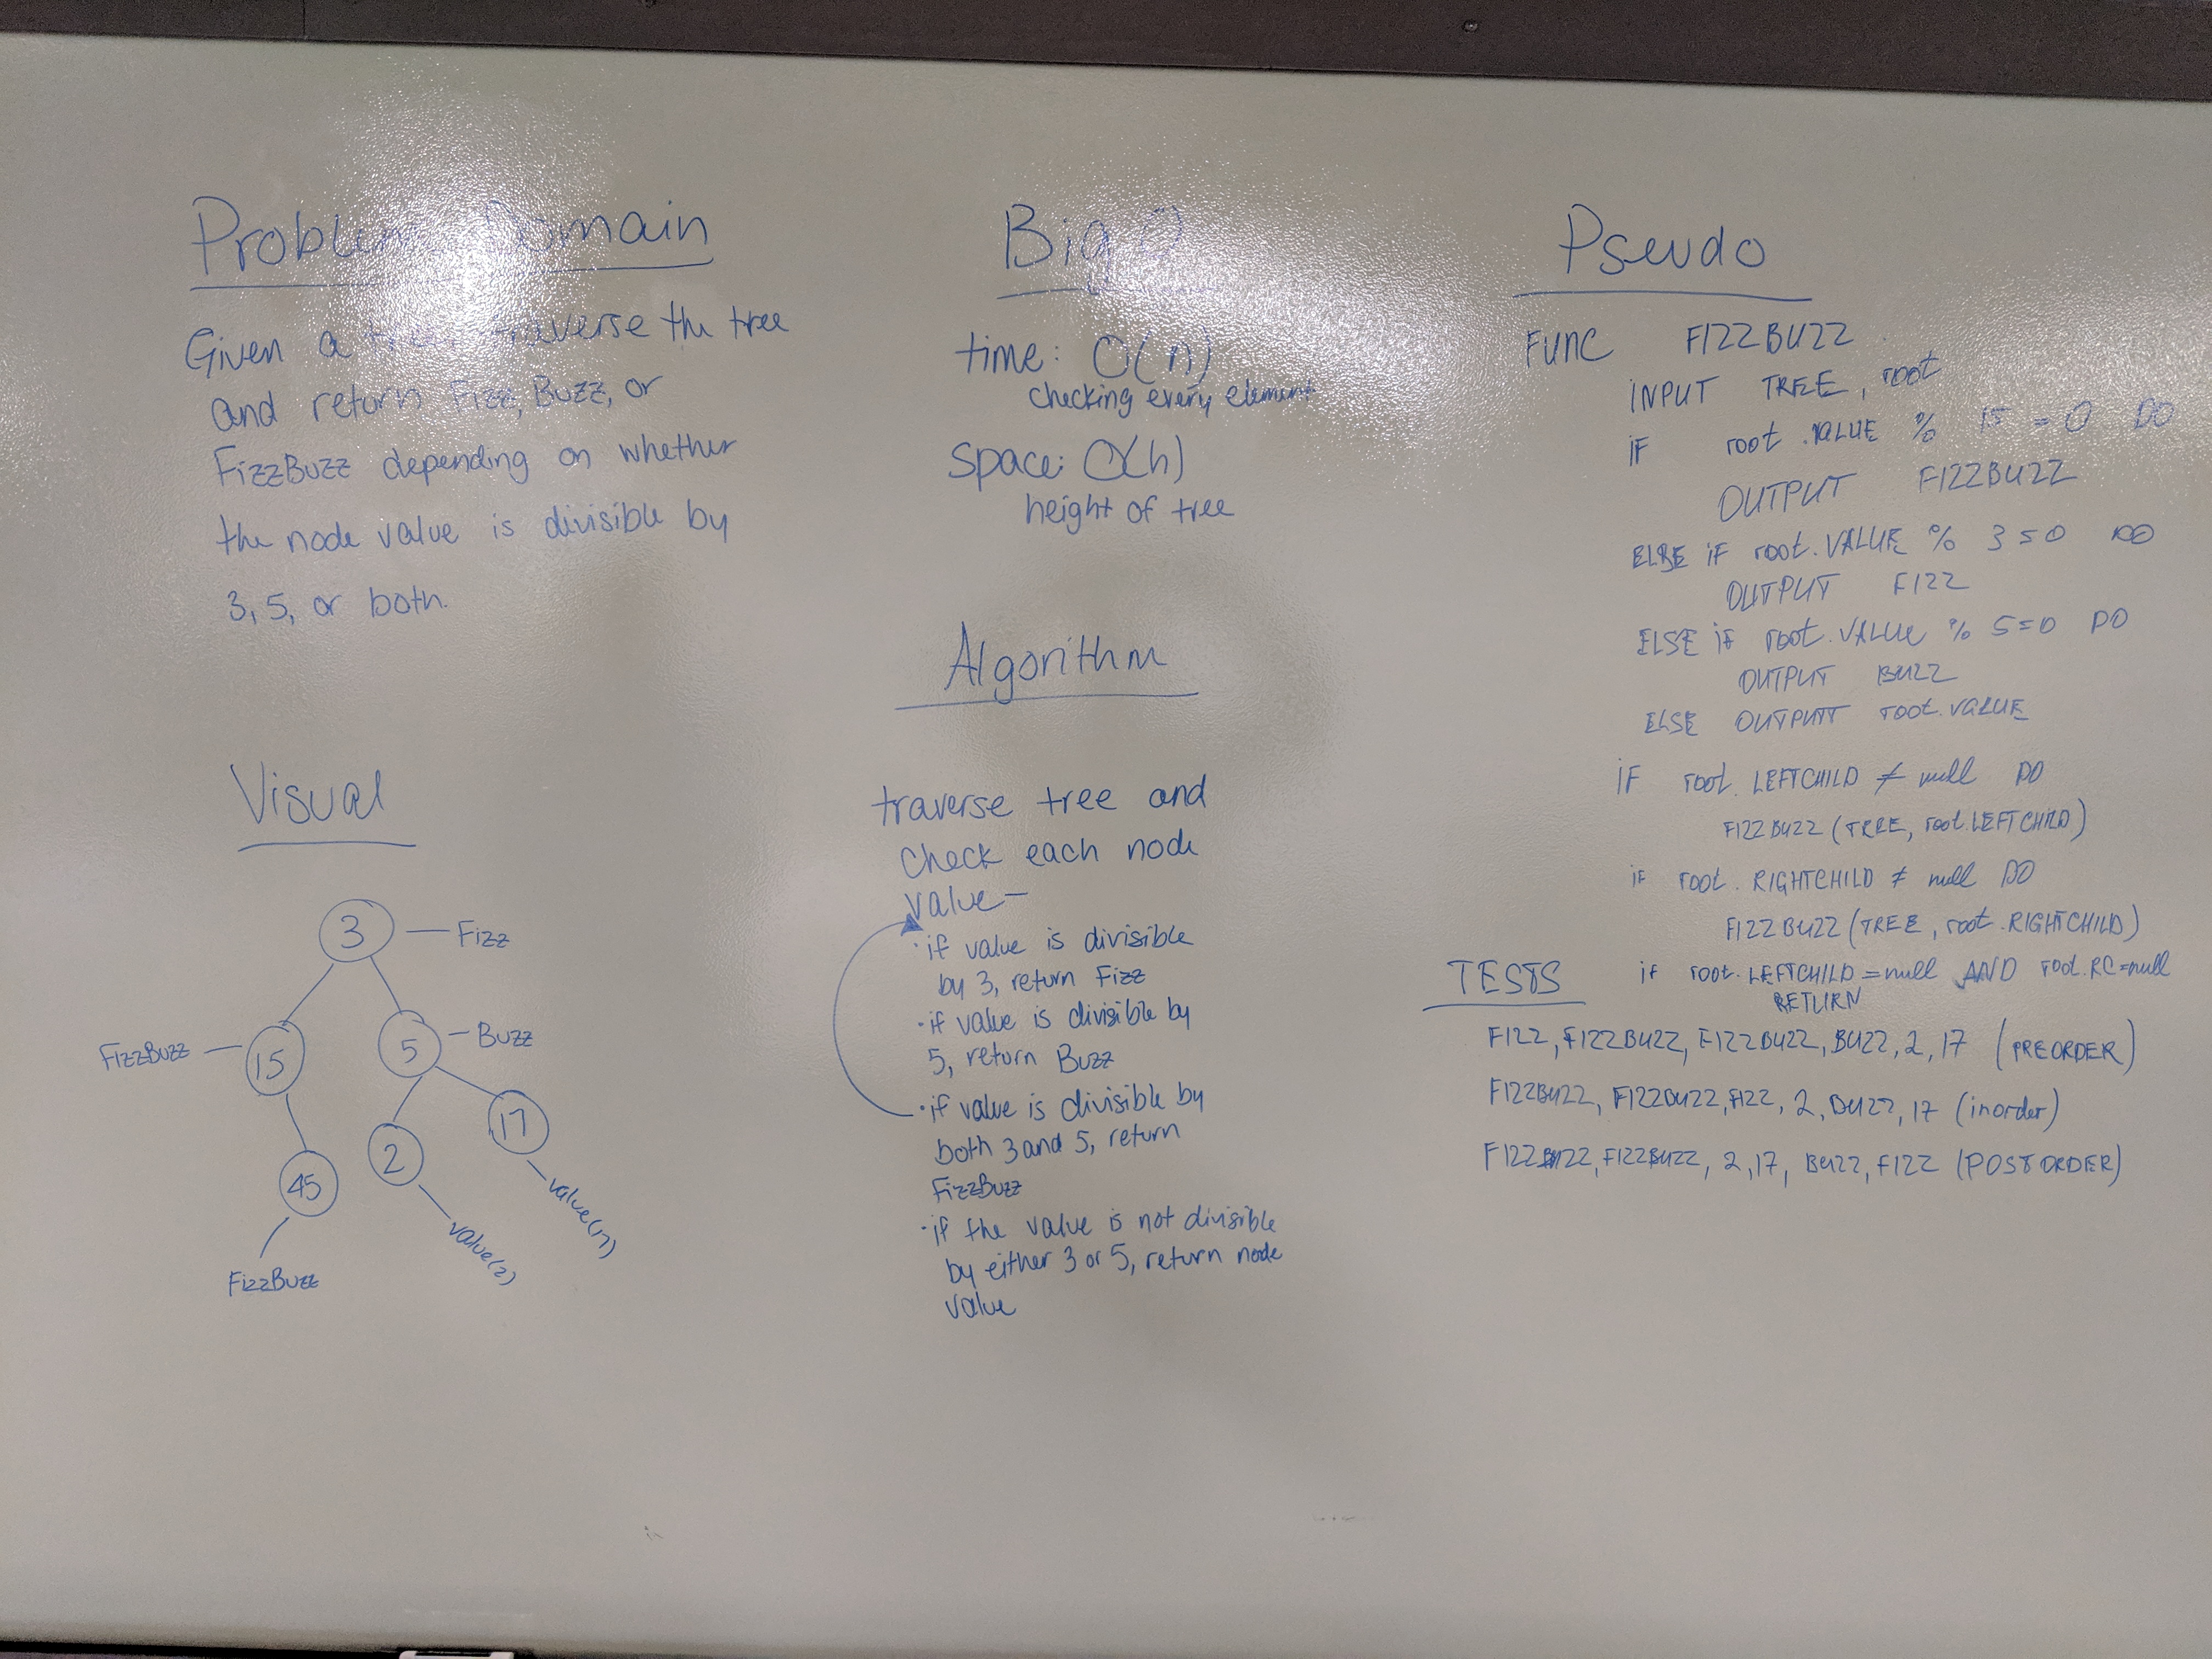 Problem Domain
Given a tree, traverse the tree
and return Fizz, Buzz, or
FizzBuzz depending on whether
the node value is divisible by
3, 5, or both.
Visual
3
Fizz
FizzBuzz
15
5
Buzz
45
2
17
FizzBuzz
value(2)
value(17)
Big O
time: O(n)
checking every element
space: O(h)
height of tree
Algorithm
traverse tree and
check each node
value-
·if value is divisible
by 3, return Fizz
·if value is divisible by
5, return Buzz
·if value is divisible by
both 3 and 5, return
FizzBuzz
·if the value is not divisible
by either 3 or 5, return node
value
Pseudo
FUNC FIZZBUZZ
INPUT TREE, root
IF root.VALUE % 15 = 0 DO
OUTPUT FIZZBUZZ
ELSE IF root.VALUE % 3 = 0 DO
OUTPUT FIZZ
ELSE IF root.VALUE % 5=0 DO
OUTPUT BUZZ
ELSE OUTPUTT root.VALUE
IF root.LEFTCHILD ≠ null DO
FIZZBUZZ (TREE, root.LEFTCHILD)
IF root.RIGHTCHILD ≠ null DO
FIZZBUZZ (TREE, root.RIGHTCHILD)
if root.LEFTCHILD=null AND root.RC=null
RETURN
TESTS
FIZZ, FIZZBUZZ, FIZZBUZZ, BUZZ, 2, 17 (PREORDER)
FIZZBUZZ, FIZZBUZZ, FIZZ, 2, BUZZ, 17 (inorder)
FIZZBUZZ, FIZZBUZZ, 2, 17, BUZZ, FIZZ (POSTORDER)